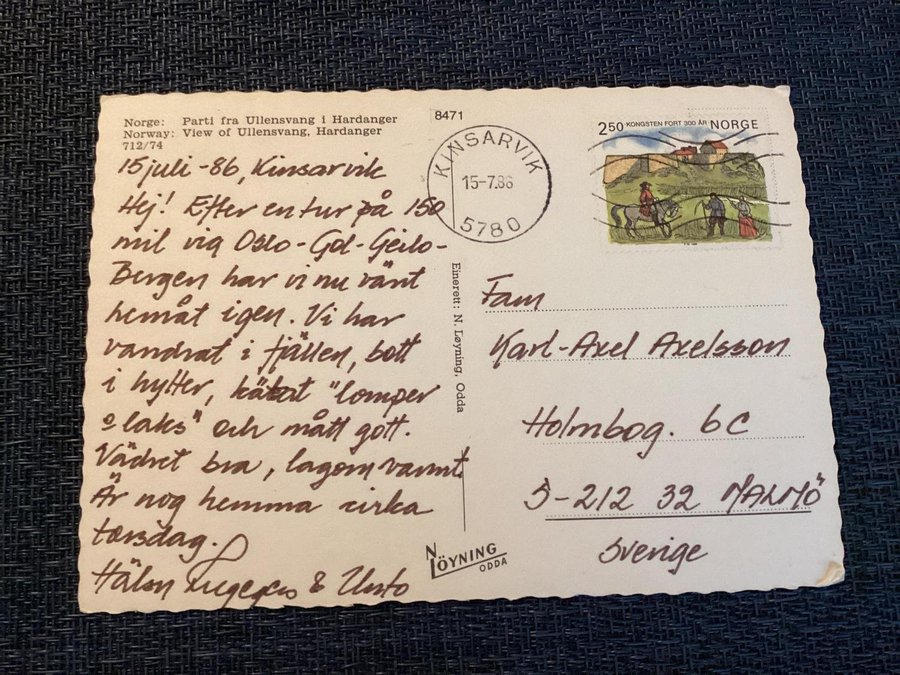 Norge: Parti fra Ullensvang i Hardanger
Norway: View of Ullensvang, Hardanger
712/74
15 juli -86, Kinsarvik
Hej! Efter en tur på 150
mil via Oslo-Gol-Geilo-
Bergen har vi nu vänt
hemåt igen. Vi har
vandrat i fjällen, bott
i hytter, "lomper
o laks" och mått gott.
Vädret bra, lagom varmt.
Är nog hemma cirka
torsdag.
Hälsn & Unto
8471
KINSARVIK
15-7.86
5780
2,50 KONGSTEN FORT 300 ÅR NORGE
Einerett: N. Løyning, Odda
NLÖYNING
ODDA
Fam
Karl-Axel Axelsson
Holmbog. 6C
S-212 32 MALMÖ
Sverige